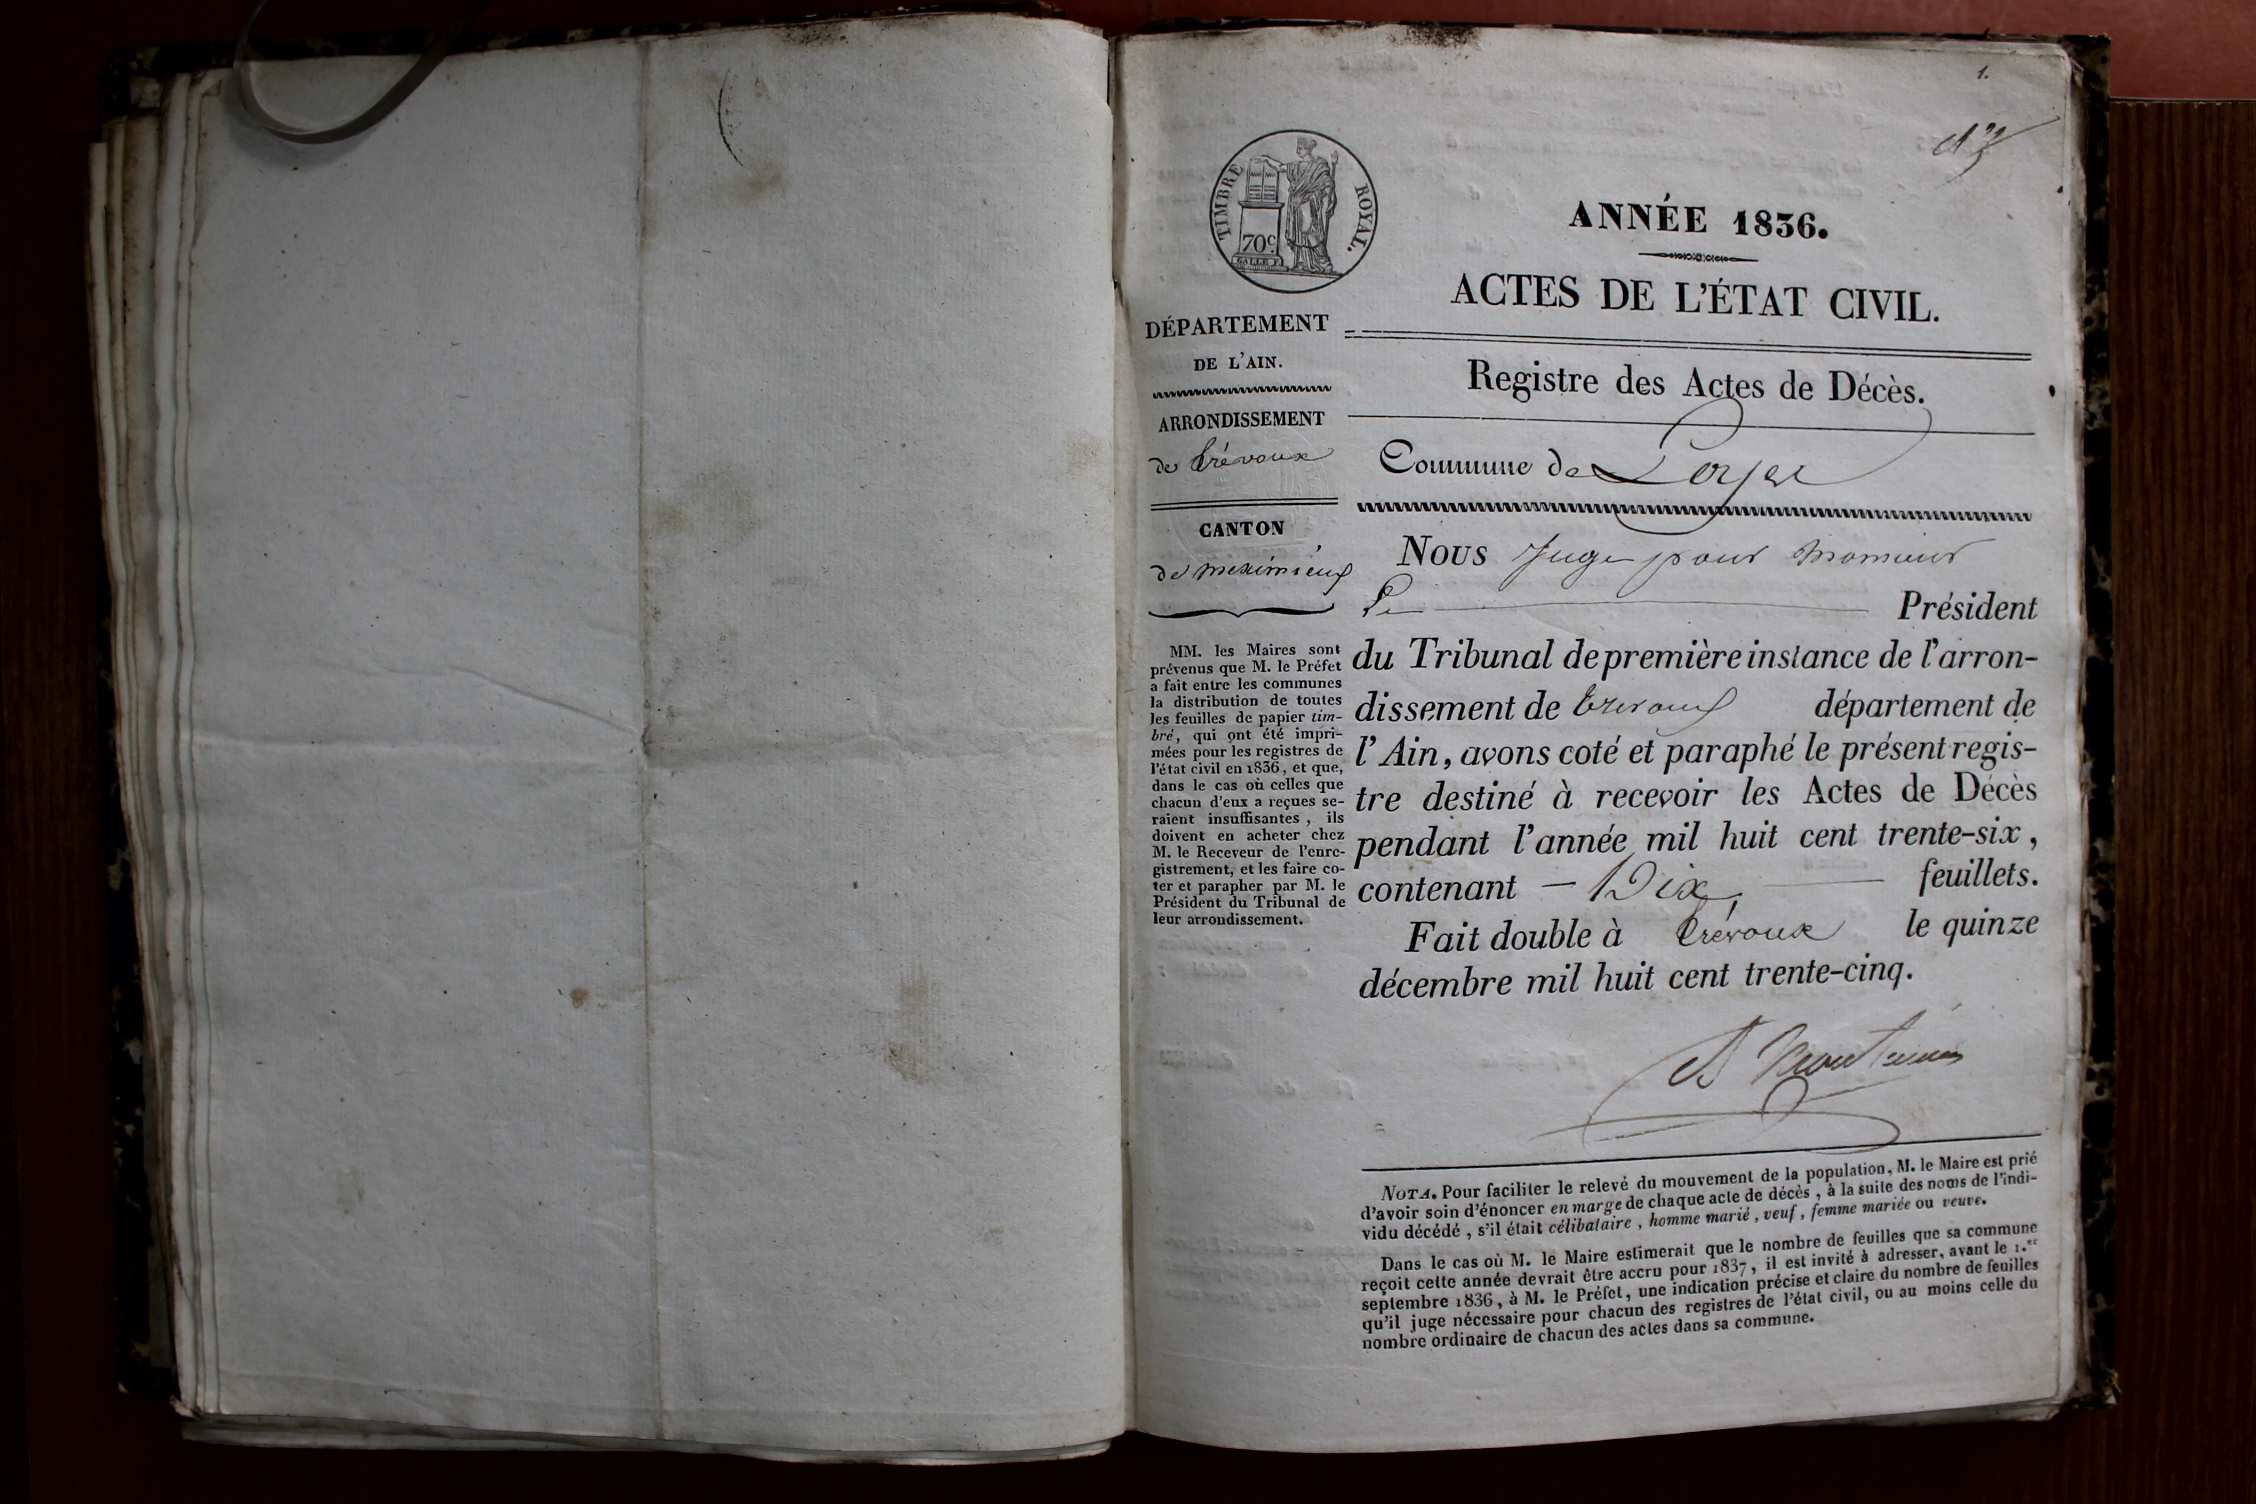 1.
TIMBRE ROYAL.
70c
GALLE F.
ANNÉE 1836.
ACTES DE L'ÉTAT CIVIL.
Registre des Actes de Décès.
Commune de Loyes
DÉPARTEMENT
DE L'AIN.
ARRONDISSEMENT
de Trévoux
CANTON
de meximieux
MM. les Maires sont
prévenus que M. le Préfet
a fait entre les communes
la distribution de toutes
les feuilles de papier tim-
bré, qui ont été impri-
mées pour les registres de
l'état civil en 1836, et que,
dans le cas où celles que
chacun d'eux a reçues se-
raient insuffisantes, ils
doivent en acheter chez
M. le Receveur de l'enre-
gistrement, et les faire co-
ter et parapher par M. le
Président du Tribunal de
leur arrondissement.
Nous Juge pour Monsieur
Le Président
du Tribunal de première instance de l'arron-
dissement de Trevoux département de
l'Ain, avons coté et paraphé le présent regis-
tre destiné à recevoir les Actes de Décès
pendant l'année mil huit cent trente-six,
contenant — Dix, feuillets.
Fait double à Trévoux le quinze
décembre mil huit cent trente-cinq.
NOTA. Pour faciliter le relevé du mouvement de la population, M. le Maire est prié
d'avoir soin d'énoncer en marge de chaque acte de décès, à la suite des noms de l'indi-
vidu décédé, s'il était célibataire, homme marié, veuf, femme mariée ou veuve.
Dans le cas où M. le Maire estimerait que le nombre de feuilles que sa commune
reçoit cette année devrait être accru pour 1837, il est invité à adresser, avant le 1.er
septembre 1836, à M. le Préfet, une indication précise et claire du nombre de feuilles
qu'il juge nécessaire pour chacun des registres de l'état civil, ou au moins celle du
nombre ordinaire de chacun des actes dans sa commune.